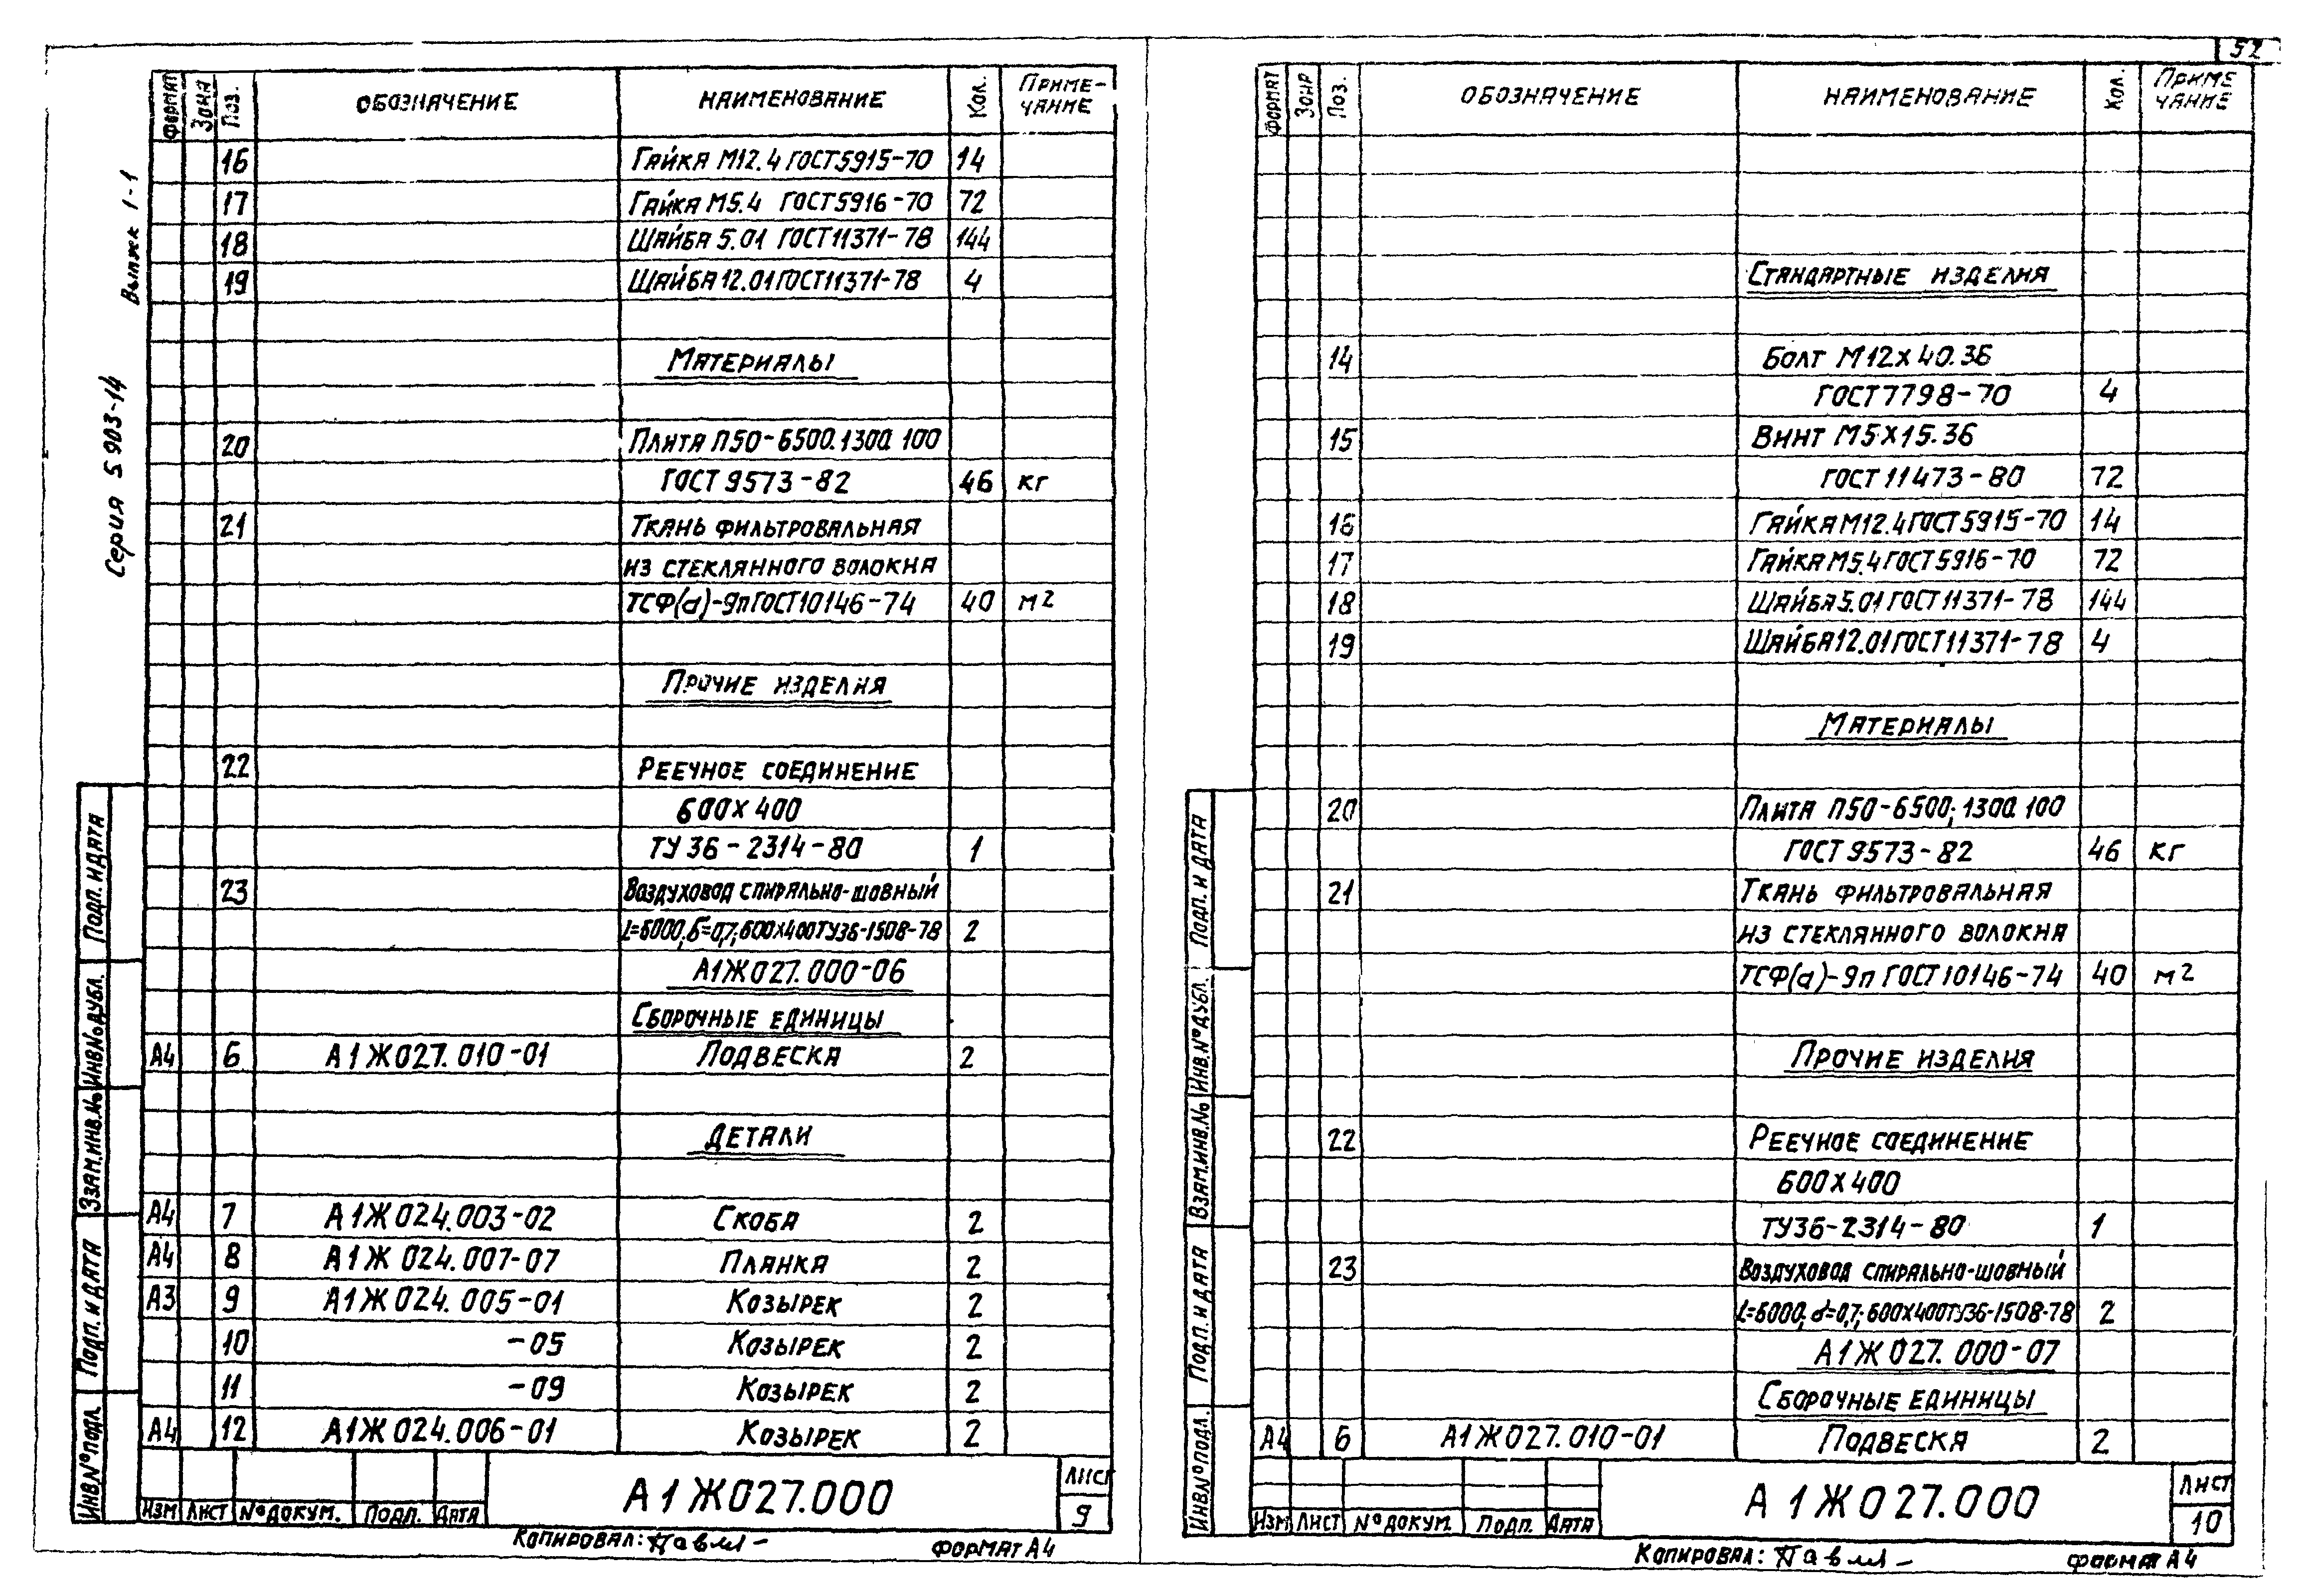 52
Серия 5 903-14
Выпуск 1-1
Формат Зона Поз. Обозначение Наименование Кол. Приме-
чание
16 Гайка М12.4 ГОСТ5915-70 14
17 Гайка М5.4 ГОСТ5916-70 72
18 Шайба 5.01 ГОСТ11371-78 144
19 Шайба 12.01 ГОСТ11371-78 4
Материалы
20 Плита П50-6500.1300.100
ГОСТ 9573-82 46 кг
21 Ткань фильтровальная
из стеклянного волокна
ТСФ(а)-9п ГОСТ10146-74 40 м2
Прочие изделия
22 Реечное соединение
600х400
ТУ 36-2314-80 1
23 Воздуховод спирально-шовный
L=6000; б=0,7; 600х400 ТУ36-1508-78 2
А1Ж027.000-06
Сборочные единицы
А4 6 А1Ж027.010-01 Подвеска 2
Детали
А4 7 А1Ж024.003-02 Скоба 2
А4 8 А1Ж024.007-07 Планка 2
А3 9 А1Ж024.005-01 Козырек 2
10 -05 Козырек 2
11 -09 Козырек 2
А4 12 А1Ж024.006-01 Козырек 2
Подп. и дата
Инв.№ дубл.
Взам.инв.№
Подп. и дата
Инв.№ подл.
Изм Лист № докум. Подп. Дата
А1Ж027.000
Лист
9
Копировал:
Формат А4
Формат Зона Поз. Обозначение Наименование Кол. Приме
чание
Стандартные изделия
14 Болт М12х40.36
ГОСТ7798-70 4
15 Винт М5х15.36
ГОСТ 11473-80 72
16 Гайка М12.4 ГОСТ5915-70 14
17 Гайка М5.4 ГОСТ5916-70 72
18 Шайба 5.01 ГОСТ11371-78 144
19 Шайба 12.01 ГОСТ11371-78 4
Материалы
20 Плита П50-6500; 1300.100
ГОСТ 9573-82 46 кг
21 Ткань фильтровальная
из стеклянного волокна
ТСФ(а)-9п ГОСТ10146-74 40 м2
Прочие изделия
22 Реечное соединение
600х400
ТУ36-2314-80 1
23 Воздуховод спирально-шовный
L=6000; d=0,7; 600х400 ТУ36-1508-78 2
А1Ж027.000-07
Сборочные единицы
А4 6 А1Ж027.010-01 Подвеска 2
Подп. и дата
Инв.№ дубл.
Взам.инв.№
Подп. и дата
Инв.№ подл.
Изм Лист № докум. Подп. Дата
А1Ж027.000
Лист
10
Копировал:
Формат А4